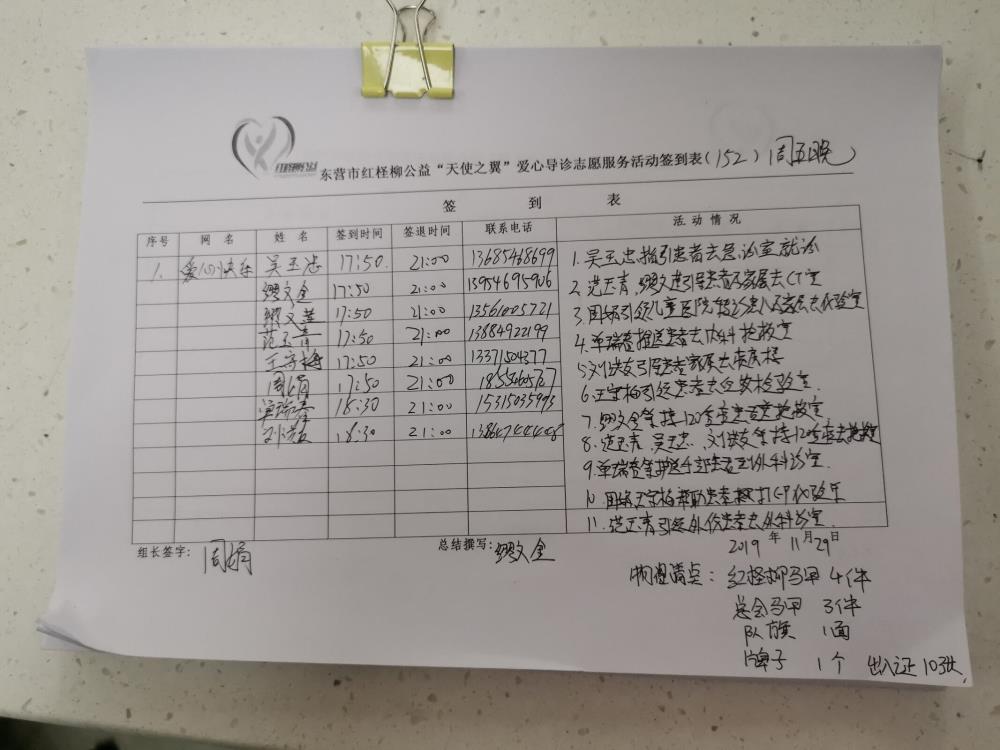 东营市红柽柳公益“天使之翼”爱心导诊志愿服务活动签到表(152) 周五晚
签 到 表
序号 网名 姓名 签到时间 签退时间 联系电话 活动情况
1. 爱心快乐 吴玉忠 17:50. 21:00 13685468699
缪文金 17:50 21:00 13954695906
缪文莲 17:50 21:00 13561005721
范玉青 17:50 21:00 13884922199
王守梅 17:50 21:00 13371504377
周娟 17:50 21:00
单瑞春 18:30 21:00 15315035993
18:30 21:00 13864744448
1. 吴玉忠指引患者去急诊室就诊
2. 范玉青,缪文莲引导患者及家属去CT室
3. 周娟引领儿童医院转诊患儿及家属去化验室
4. 单瑞春推送患者去内科抢救室
5. 引导患者家属去
6. 王守梅引领患者去
7. 缪文金等接120急救患者去抢救室
8. 范玉青,吴玉忠, 等接120急救去抢救室
9. 单瑞春等护送 患者到外科诊室.
10. 周娟王守梅帮助患者 打印化验单
11. 范玉青引领外伤患者去外科诊室.
组长签字: 周娟 总结撰写: 缪文金
2019 年 11月29日
物包清点: 红柽柳马甲 4件
总会马甲 3件
队旗 1面
牌子 1个 出入证 10张